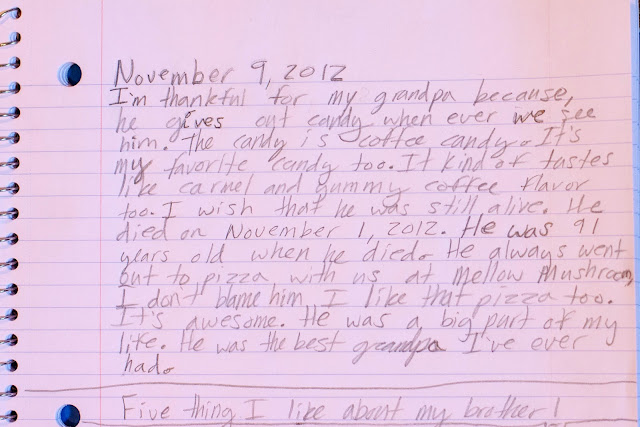 November 9, 2012
I'm thankful for my grandpa because,
he gives out candy when ever we see
him. The candy is coffee candy. It's
my favorite candy too. It kind of tastes
like carmel and yummy coffee flavor
too. I wish that he was still alive. He
died on November 1, 2012. He was 91
years old when he died. He always went
out to pizza with us at Mellow Mushroom,
I don't blame him, I like that pizza too.
It's awesome. He was a big part of my
life. He was the best grandpa I've ever
had.
Five thing I like about my brother!